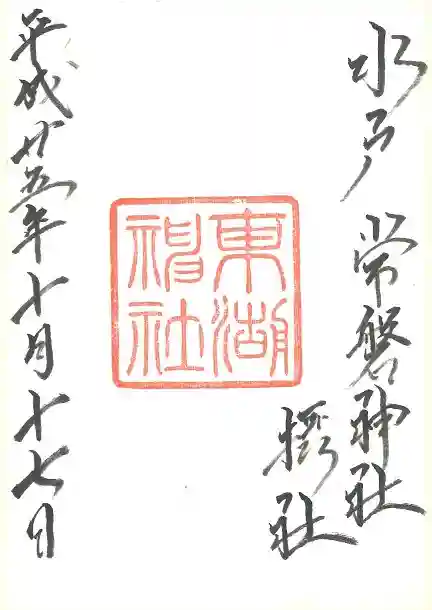 水戸 常磐神社
摂社
東湖
神社
平成廿五年十月十七日